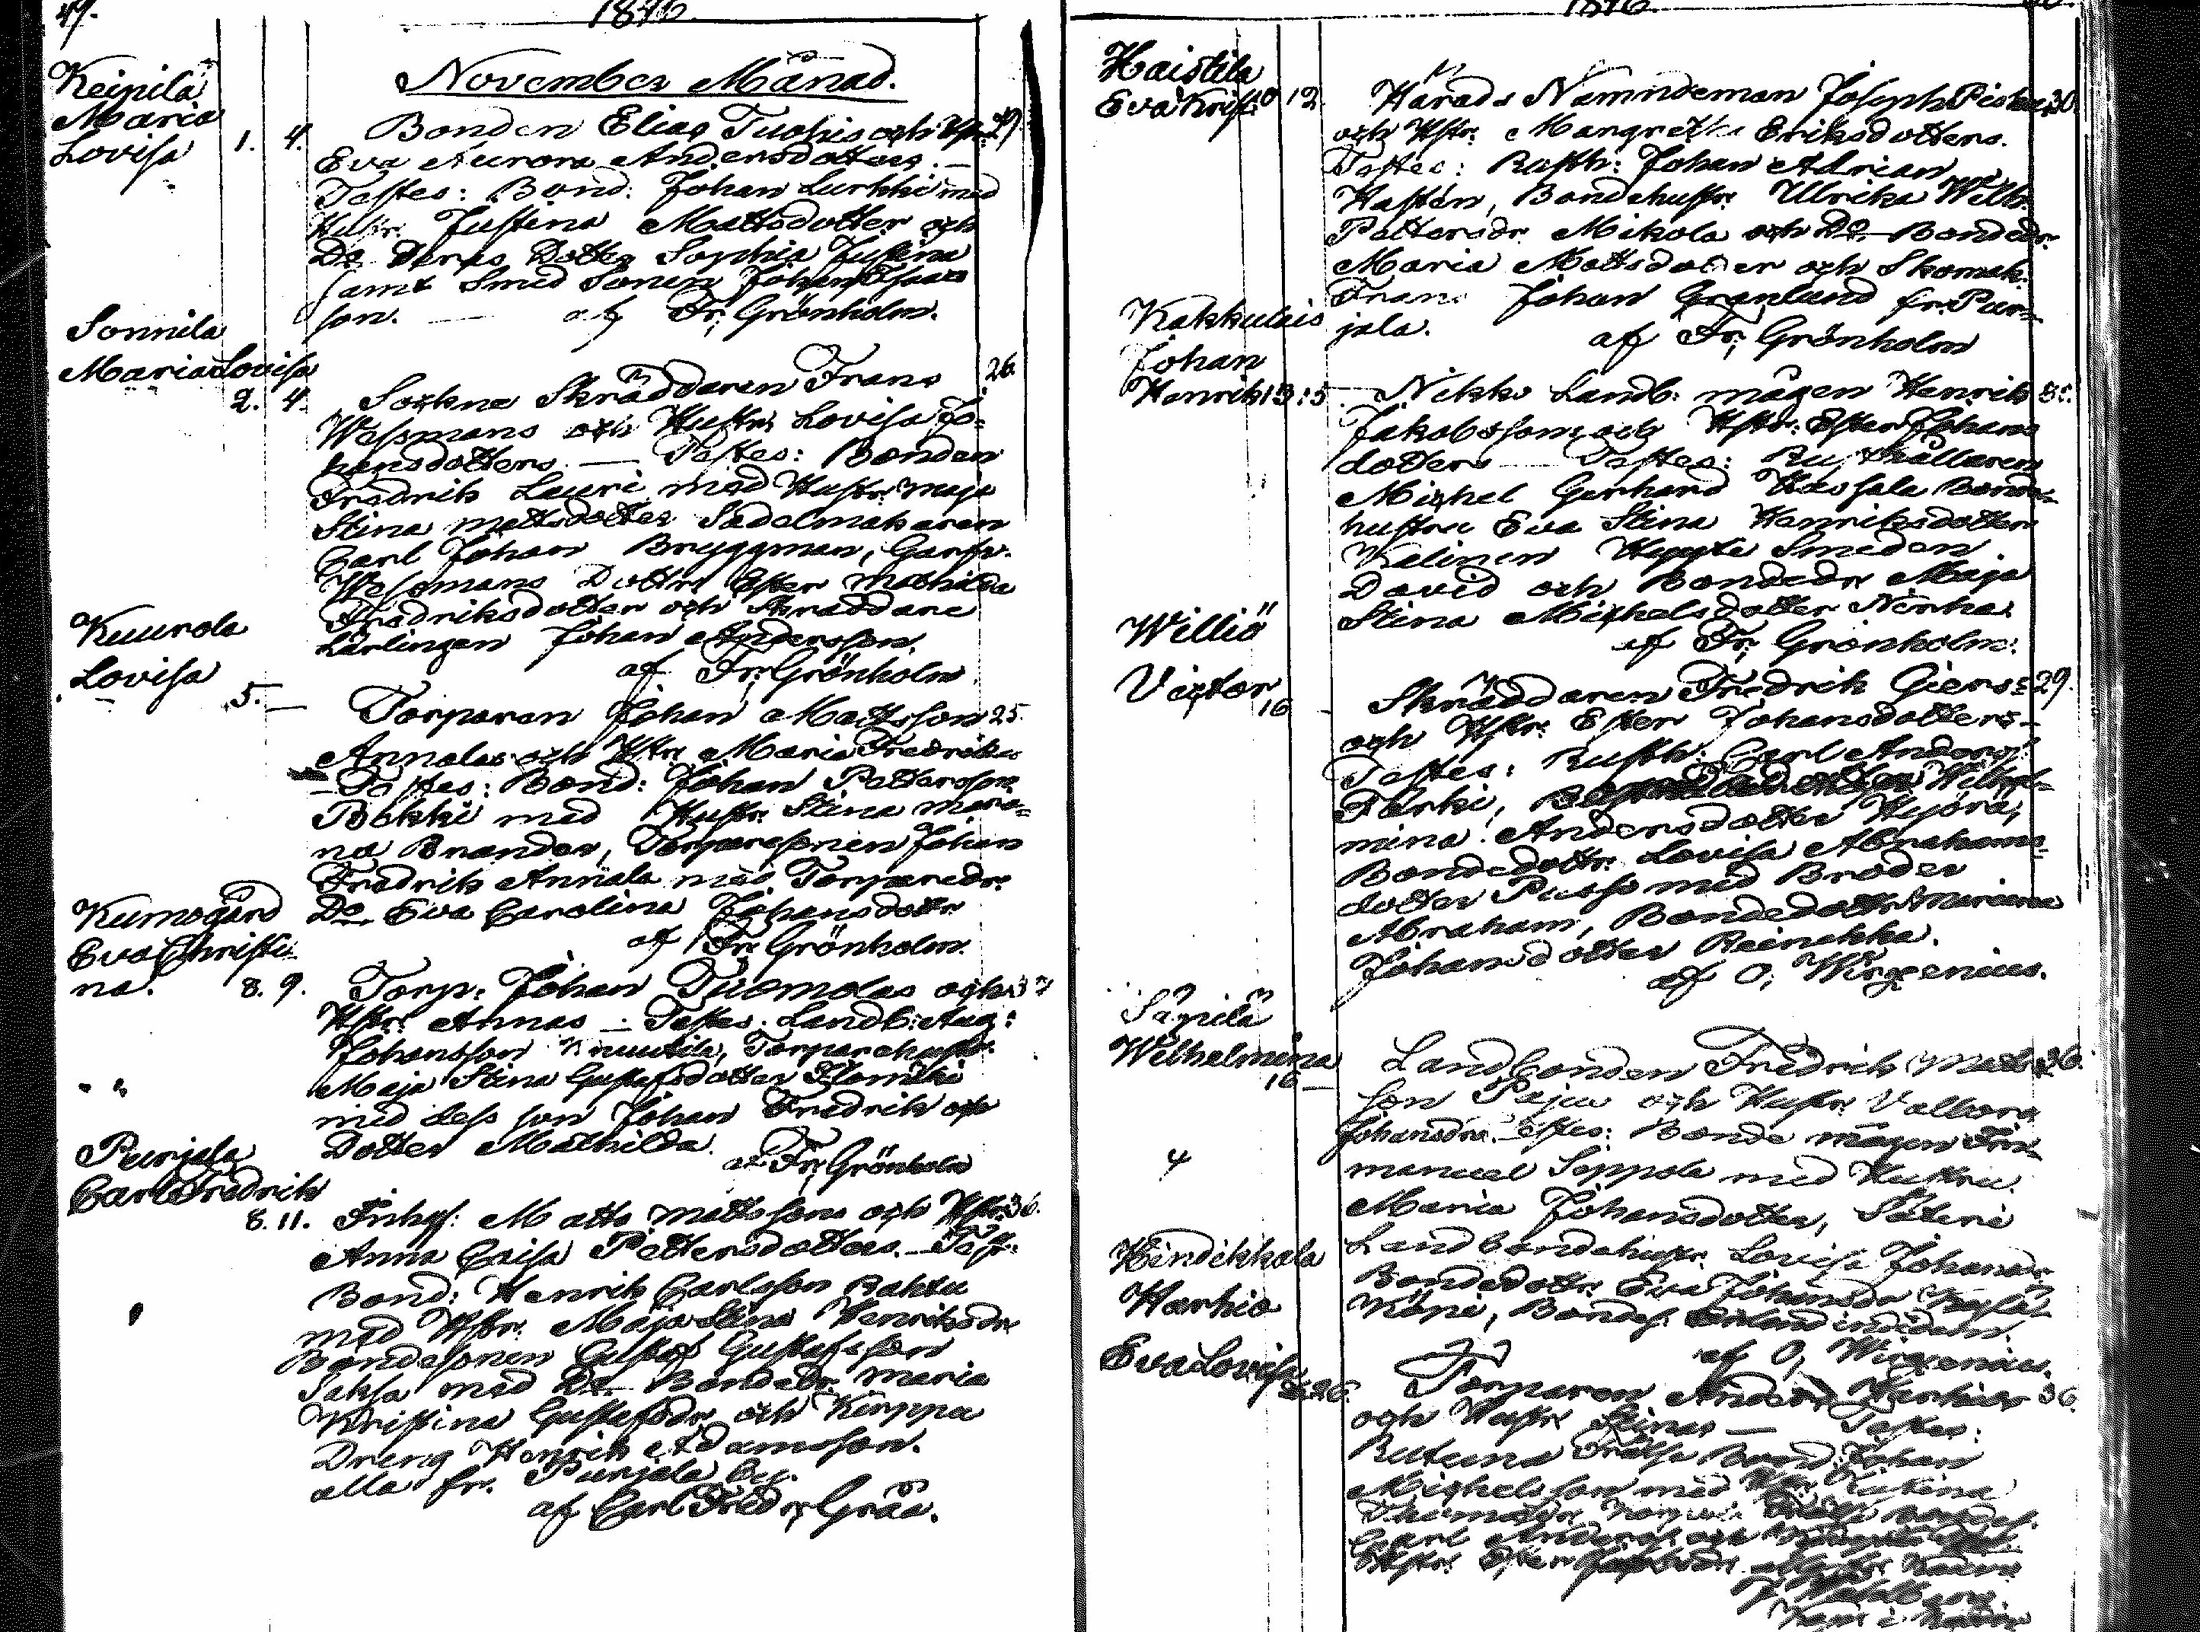 49.
1846.
November Månad.
Keipilä
Maria
Lovisa 1. 4.
Bonden Elias Tuohis och Hstr: 29.
Eva Aurora Andersdotters. —
Testes: Bond: Johan Lurkki med
Hustr. Justina Mattsdotter och
Do Deras Dotter Sophia Justina
samt Smed Sonen Johan Isaacs
son. — af Fr: Grönholm.
Sonnila
Maria Lovisa
2. 4.
Sockne Skräddaren Frans 26.
Wessmans och Hustrs Lovisa Jo-
hansdotters. — Testes: Bonden
Fredrik Lauri med Hustr: Maja
Stina Mattsdotter Sadelmakaren
Carl Johan Bryggman, Garfv.
Wessmans Dottr: Ester Mathilda
Fredriksdotter och Skräddare
Lärlingen Johan Andersson.
af Fr: Grönholm.
Kuurola
Lovisa
5. —
Torparen Johan Mattsson 25.
Annalas och Hstr: Maria Fredrikas
— Testes: Bond: Johan Pettersson
Pokki med Hustr: Stina Maria-
na Brander, Torparesonen Johan
Fredrik Annala med Torparedr.
Do Eva Carolina Johansdottr
af Fr: Grönholm.
Kumogård
Eva Christi-
na. 8. 9.
Torp: Johan Tuomolas och 37
Hstr: Annas — Testes: Landb: Aug:
Johansson Knuutila, Torparehustr:
Maja Stina Gustafsdotter
med dess son Johan Fredrik och
Dotter Mathilda.
af Fr: Grönholm
Purjala
Carl Fredrik
8. 11.
Inhys: Matts Mattssons och Hstr: 36.
Anna Caisa Pettersdotters. — Test:
Bond: Henrik Carlsson Rahtu
med Hstr: Maja Stina Henriksdr
Bondesonen Gustaf Gustafsson
Saksa med Do Bondedr. Maria
Kristina Gustafsdr. och Kirppu
Dreng Henrik Adamsson.
alla fr. Purjala by.
af Carl Fredr: Gråå.
1846.
Haistila
Eva Krist: 10 12.
Härads Nämndeman Joseph 30.
och Hstr: Margretha Eriksdotters.
Testes: Rusth: Johan Adrian
Hasten, Bondehustr: Ulrika Wilh:
Pettersdr. Mikola och Do Bondedr.
Maria Mattsdotter och Skomak:
Frans Johan Granlund fr. Pur-
jala. af Fr: Grönholm
Kakkulais
Johan
Henrik 13. 15
Nikko Landb: mågen Henrik
Jakobssons och Hstr: Ester Johans
dotters — Testes: Rusthållaren
Michel Gerhard Hassala Bonde-
hustru Eva Stina Henriksdotter
Kalinen Smeden
David och Bondedr Maja
Stina Michelsdotter
af Fr: Grönholm.
Williö
Victor
16 —
Skräddaren Fredrik Giers: 29.
och Hstr: Ester Johansdotters —
Testes: Rusth: Carl Anders:
Wilhel-
mina Andersdotter
Bondedottr: Lovisa Abrahams-
dotter Pusso med Broder
Abraham, Bondedottr Mariana
Johansdotter Reinikka.
af O: Wirzenius.
Säpilä
Welhelmina
16 —
Landbonden Fredrik Matts 36.
son Paju och Hustr: Valborg
Johansdrs Testes: Bonde mågen Im-
manuel Seppola med Hustru
Maria Johansdotter, Säteri
Landbondehustr. Lovisa Johansdr
Bondedottr: Eva Johansdr
af O: Wirzenius.
Hindikkala
Harhio
Eva Lovisa
26.
Torparen Anders Harhios 36.
och Hustr: Stinas — Testes:
Frälse Bond: Johan
Michelsson med Hstr: